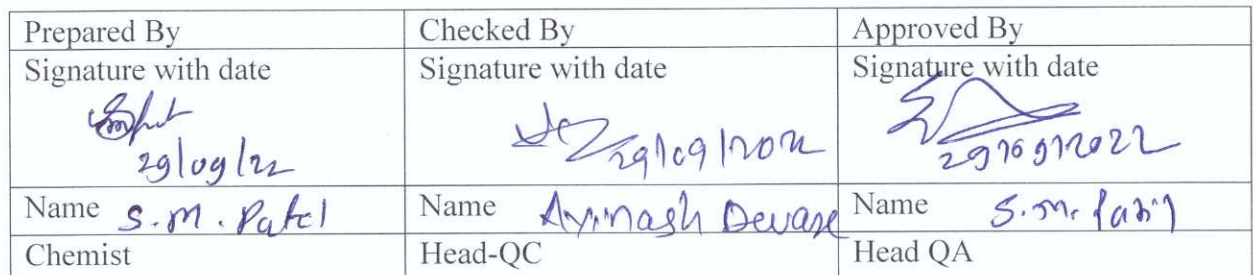 Prepared By Checked By Approved By
Signature with date Signature with date Signature with date
29/09/22 29/09/2022 29/09/2022
Name S.M. Patel Name Avinash Devare Name S.M.
Chemist Head-QC Head QA